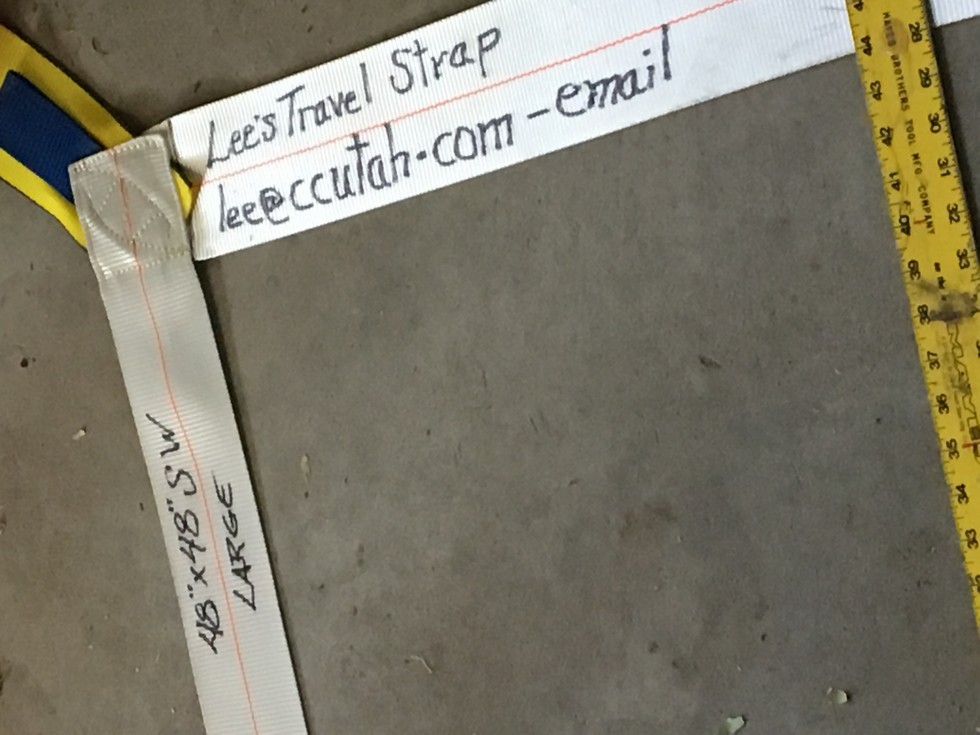 Lee's Travel Strap
lee@ccutah.com - email
48"x48" SW
LARGE
44 43 42 41 40 39 38 37 36 35 34 33
HAYES BROTHERS TOOL MFG COMPANY
28 29 30 31 32 33